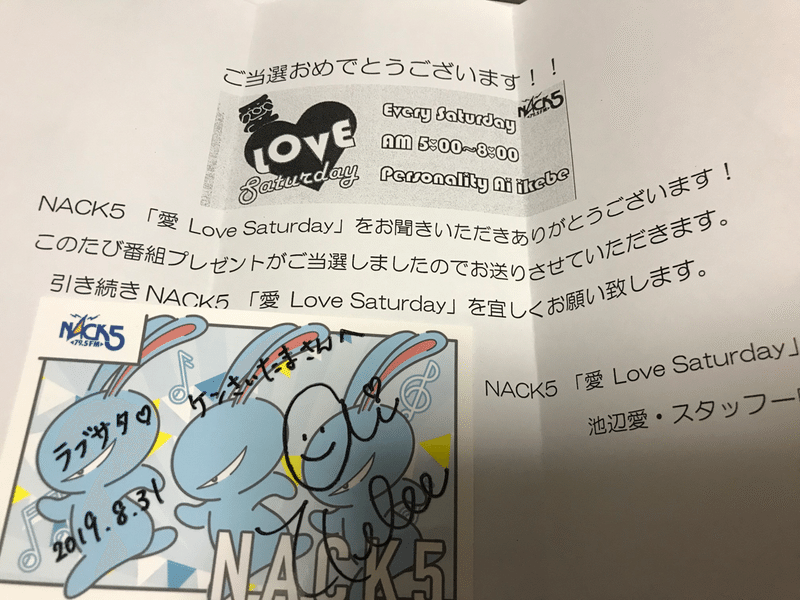 ご当選おめでとうございます！！
LOVE
Saturday
Every Saturday
AM 5:00~8:00
Personality Ai ikebe
NACK5
NACK5 「愛 Love Saturday」をお聞きいただきありがとうございます！
このたび番組プレゼントがご当選しましたのでお送りさせていただきます。
引き続きNACK5 「愛 Love Saturday」を宜しくお願い致します。
NACK5 「愛 Love Saturday」
池辺愛・スタッフ一同
NACK5
79.5FM
ケンさいたまさんへ
ラブサタ♡
2019.8.31
Ai
Ikebe
NACK5